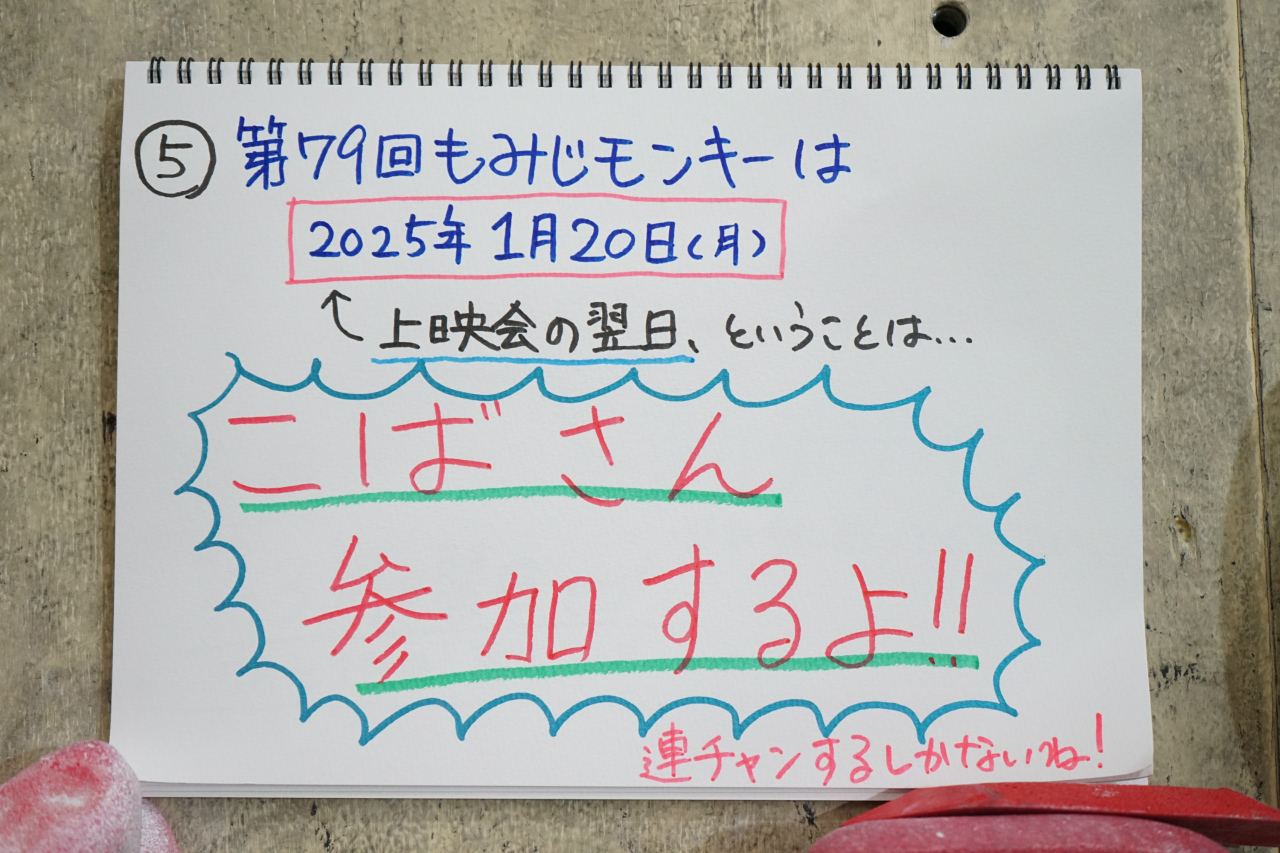 ⑤ 第79回もみじモンキーは
2025年1月20日(月)
↑上映会の翌日、ということは...
こばさん
参加するよ!!
連チャンするしかないね!